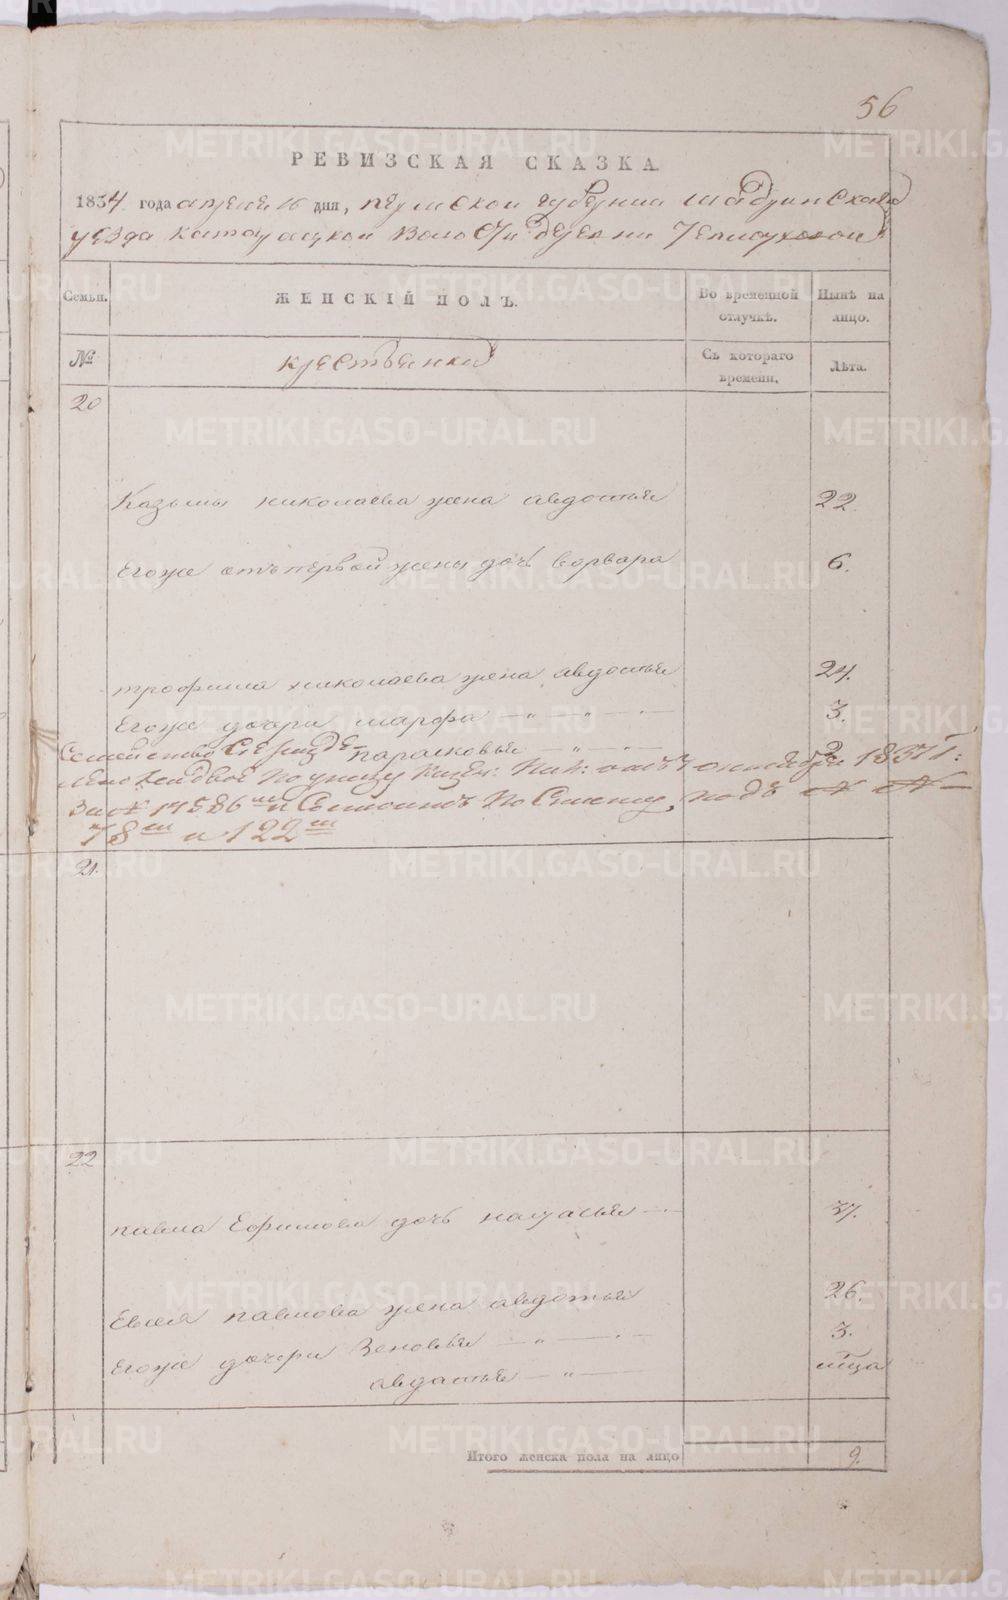 56
РЕВИЗСКАЯ СКАЗКА
1834 года апреля 16 дня, пермской губернии шадринскаго
уезда волости деревни
Семьи. ЖЕНСКІЙ ПОЛЪ. Во временной отлучкѣ. Нынѣ на лицо.
№ крестьянки Съ котораго времени. Лѣта.
20
Казьмы николаева жена авдотья 22.
Егоже отъ первой жены дочь варвара 6.
трофима николаева жена авдотья 24.
Егоже дочери марфа — „ — „ — 3.
парасковья — „ — 2
Семейство
1837 г:
За № 17586 по подъ № №
78 и 122
21.
22
павла Ефимова дочь настасья 37.
павлова жена авдотья 26.
Егоже дочери Зеновья — „ — 3.
авдотья — „ —
Итого женска пола на лицо 9.
METRIKI.GASO-URAL.RU